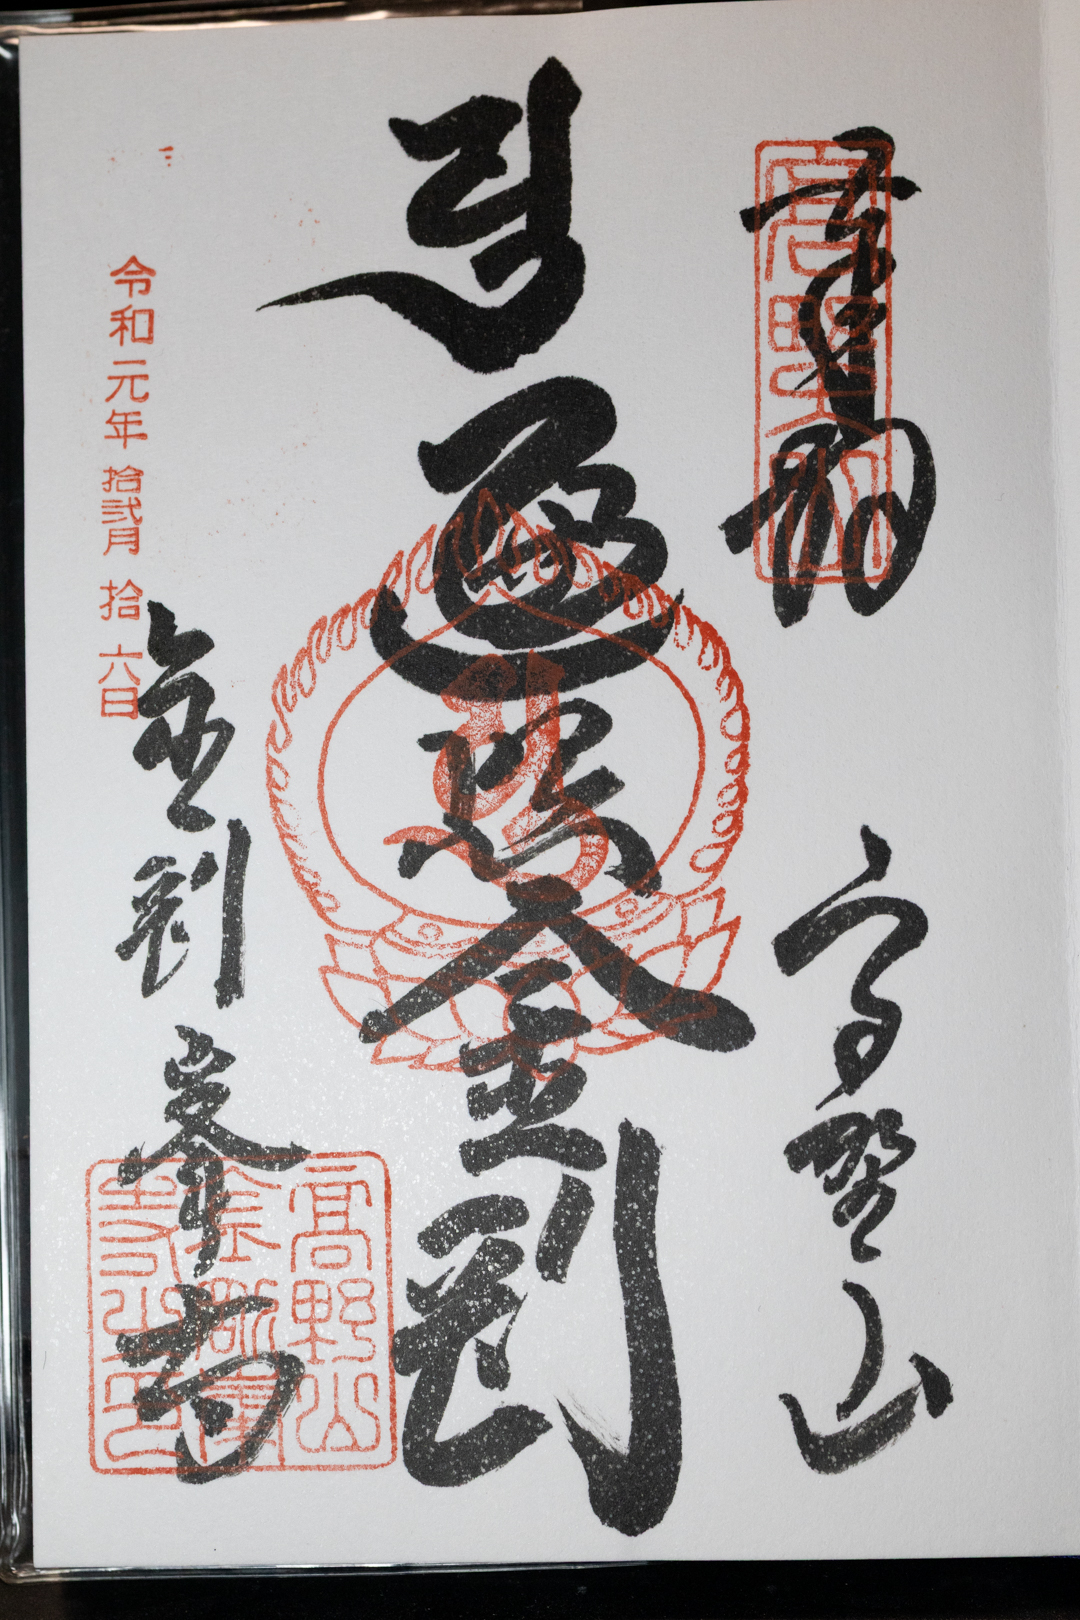 奉拝
高野山
高野山
遍照金剛
令和元年拾弐月拾六日
金剛峯寺
高野山
金剛峯
寺之印